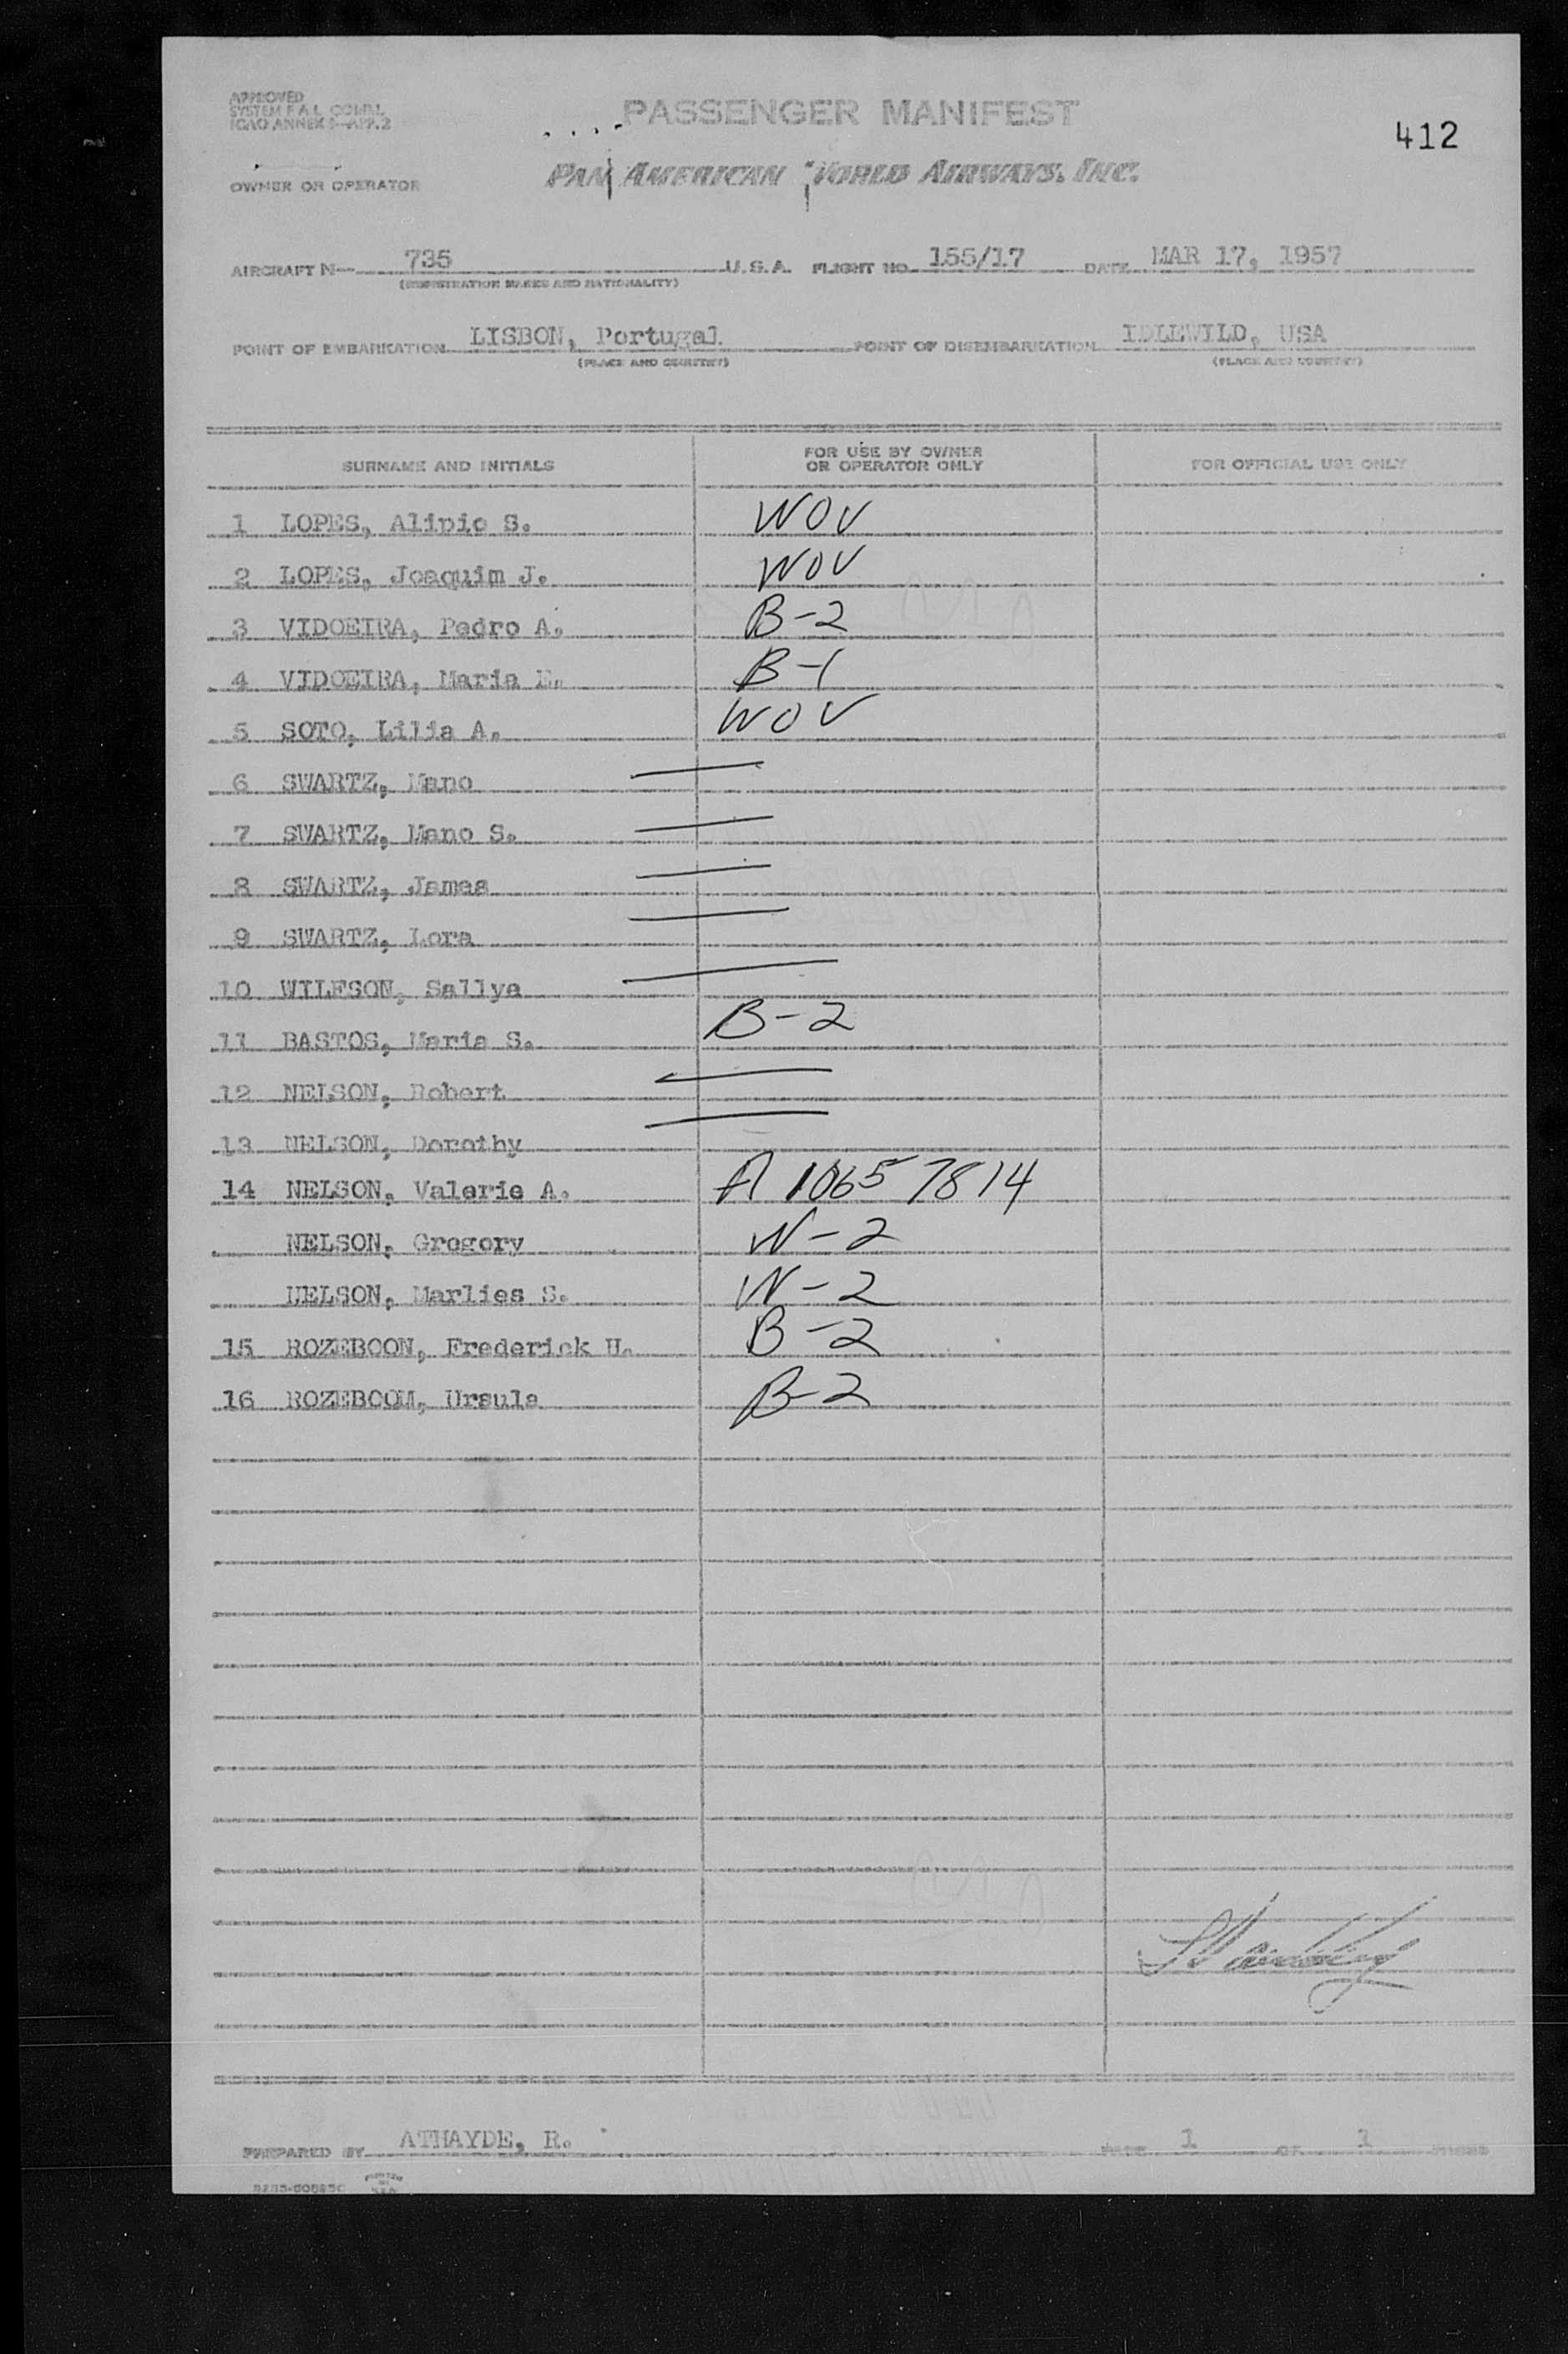 APPROVED
SYSTEM F.A.L. COMM.
ICAO ANNEX 9-APP.2
PASSENGER MANIFEST
412
OWNER OR OPERATOR PAN AMERICAN WORLD AIRWAYS, INC.
AIRCRAFT N- 735 U.S.A. FLIGHT NO. 155/17 DATE MAR 17, 1957
(REGISTRATION MARKS AND NATIONALITY)
POINT OF EMBARKATION LISBON, Portugal POINT OF DISEMBARKATION IDLEWILD, USA
(PLACE AND COUNTRY) (PLACE AND COUNTRY)
SURNAME AND INITIALS FOR USE BY OWNER OR OPERATOR ONLY FOR OFFICIAL USE ONLY
1 LOPES, Alipio S. WOV
2 LOPES, Joaquim J. WOV
3 VIDOEIRA, Pedro A. B-2
4 VIDOEIRA, Maria E. B-1
5 SOTO, Lilia A. WOV
6 SWARTZ, Mano
7 SWARTZ, Mano S.
8 SWARTZ, James
9 SWARTZ, Lora
10 WILFSON, Sallye
11 BASTOS, Maria S. B-2
12 NELSON, Robert
13 NELSON, Dorothy
14 NELSON, Valerie A. A 10657814
NELSON, Gregory W-2
NELSON, Marlies S. W-2
15 ROZEBOON, Frederick H. B-2
16 ROZEBOOM, Ursula B-2
PREPARED BY ATHAYDE, R. PAGE 1 OF 1
PRINTED
IN
U.S.A.